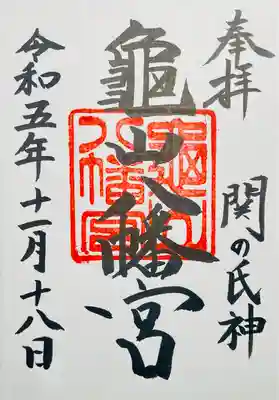 奉拝
関の氏神
龜山八幡宮
令和五年十一月十八日
龜山八幡宮